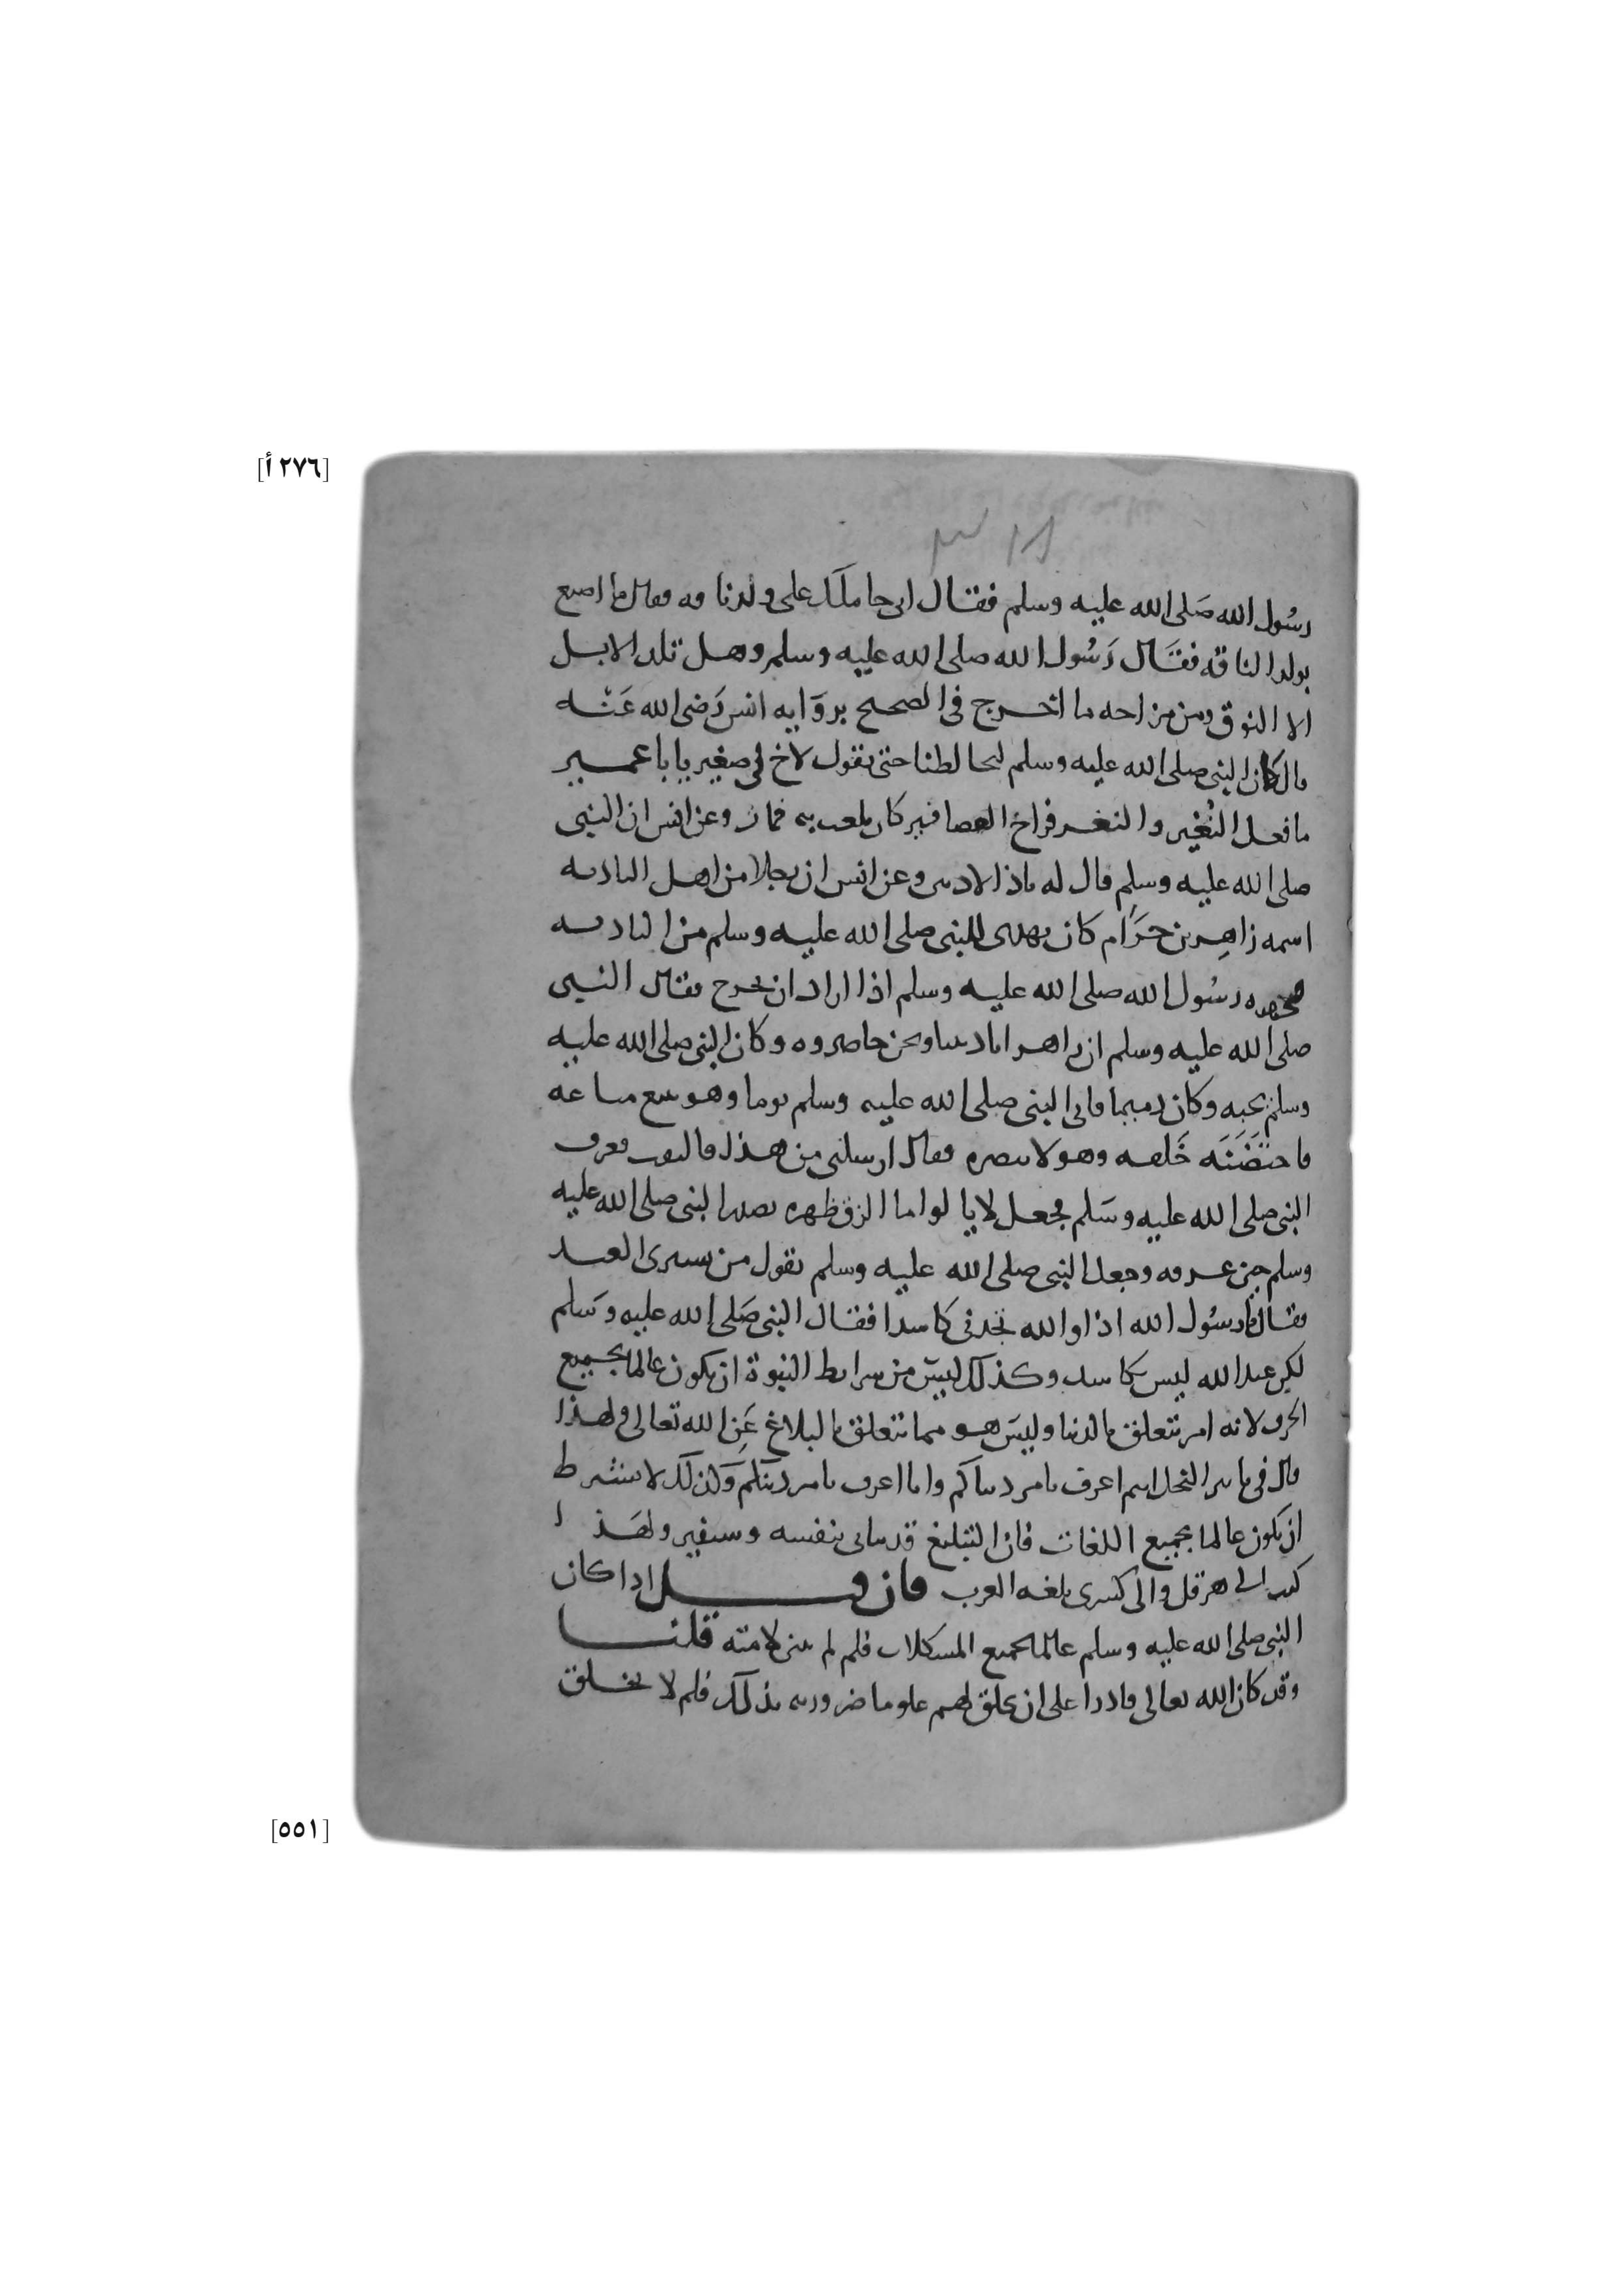 [٢٧٦ أ]
رسُول الله صَلى الله عليه وسلم فقال انى حاملك على ولد ناقه فقال ما اصنع
بولد الناقه فقَال رَسُول الله صلى الله عليه وسلم وهل تلد الابل
الا النوق ومن مزاحه ما اخرج في الصحيح بروَايه انس رَضى الله عَنْه
قال كان النبي صلى الله عليه وسلم ليخالطنا حتى يقول لاخ لي صغير يا با عمير
ما فعل النُغَير والنغر فراخ العصافير كان يلعب به فمات وعن انس ان النبي
صلى الله عليه وسلم قال له ياذا الاذنين وعن انس ان رجلا من اهل الباديه
اسمه زاهِر بن حرَام كان يهدى للنبى صلى الله عليه وسلم من الباديه
فيجهزه رسُول الله صلى الله عليه وسلم اذا اراد ان يخرج فقال النبي
صلى الله عليه وسلم ان زاهرا باديتنا ونحن حاضروه وكان النبي صلى الله عليه
وسلم يحبه وكان دميما فاتى النبي صلى الله عليه وسلم يوما وهو يبيع متاعه
فاحتَضَنَه خَلفه وهو لا يبصره فقال ارسلنى من هذا فالتفت فعرف
النبي صلى الله عليه وسَلم فجعل لا يالوا ما الزق ظهره بصدر النبي صلى الله عليه
وسلم حين عرفه وجعل النبي صلى الله عليه وسلم يقول من يشترى العبد
فقال يا رسُول الله اذا والله تجدنى كاسدا فقال النبي صَلى الله عليه وسَلم
لكن عند الله ليس بكاسد وكذلك ليسَ من شرايط النبوة ان يكون عالما بجميع
الحرف لانه امر يتعلق بالدنيا وليسَ هو مما يتعلق بالبلاغ عَن الله تعالى ولهذا
قال في تابير النخل انتم اعرف بامر دنياكم وانا اعرف بامر دينكم وَلذلك لا يشترط
ان يكون عالما بجميع اللغات فان التبليغ قد ياتى بنفسه وسفير ولهَذا
كتب الى هرقل والى كسرى بلغه العرب فان قيل اذا كان
النبي صلى الله عليه وسلم عالما بجميع المشكلات فلم لم يبين لامته قلنا
وقد كان الله تعالى قادرا على ان يخلق لهم علوما ضروريه بذلك فلم لا يخلق
[٥٥١]